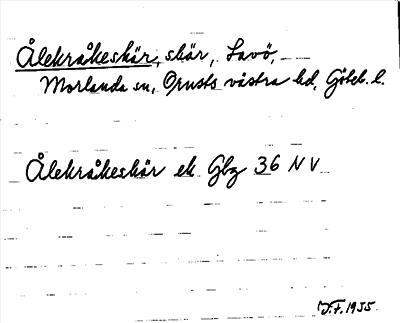 Ålekråkeskär, skär, Lavö,
Morlanda sn, Orusts västra hd, Göteb. l.
Ålekråkeskär ek Gbg 36 NV
J.F. 1955